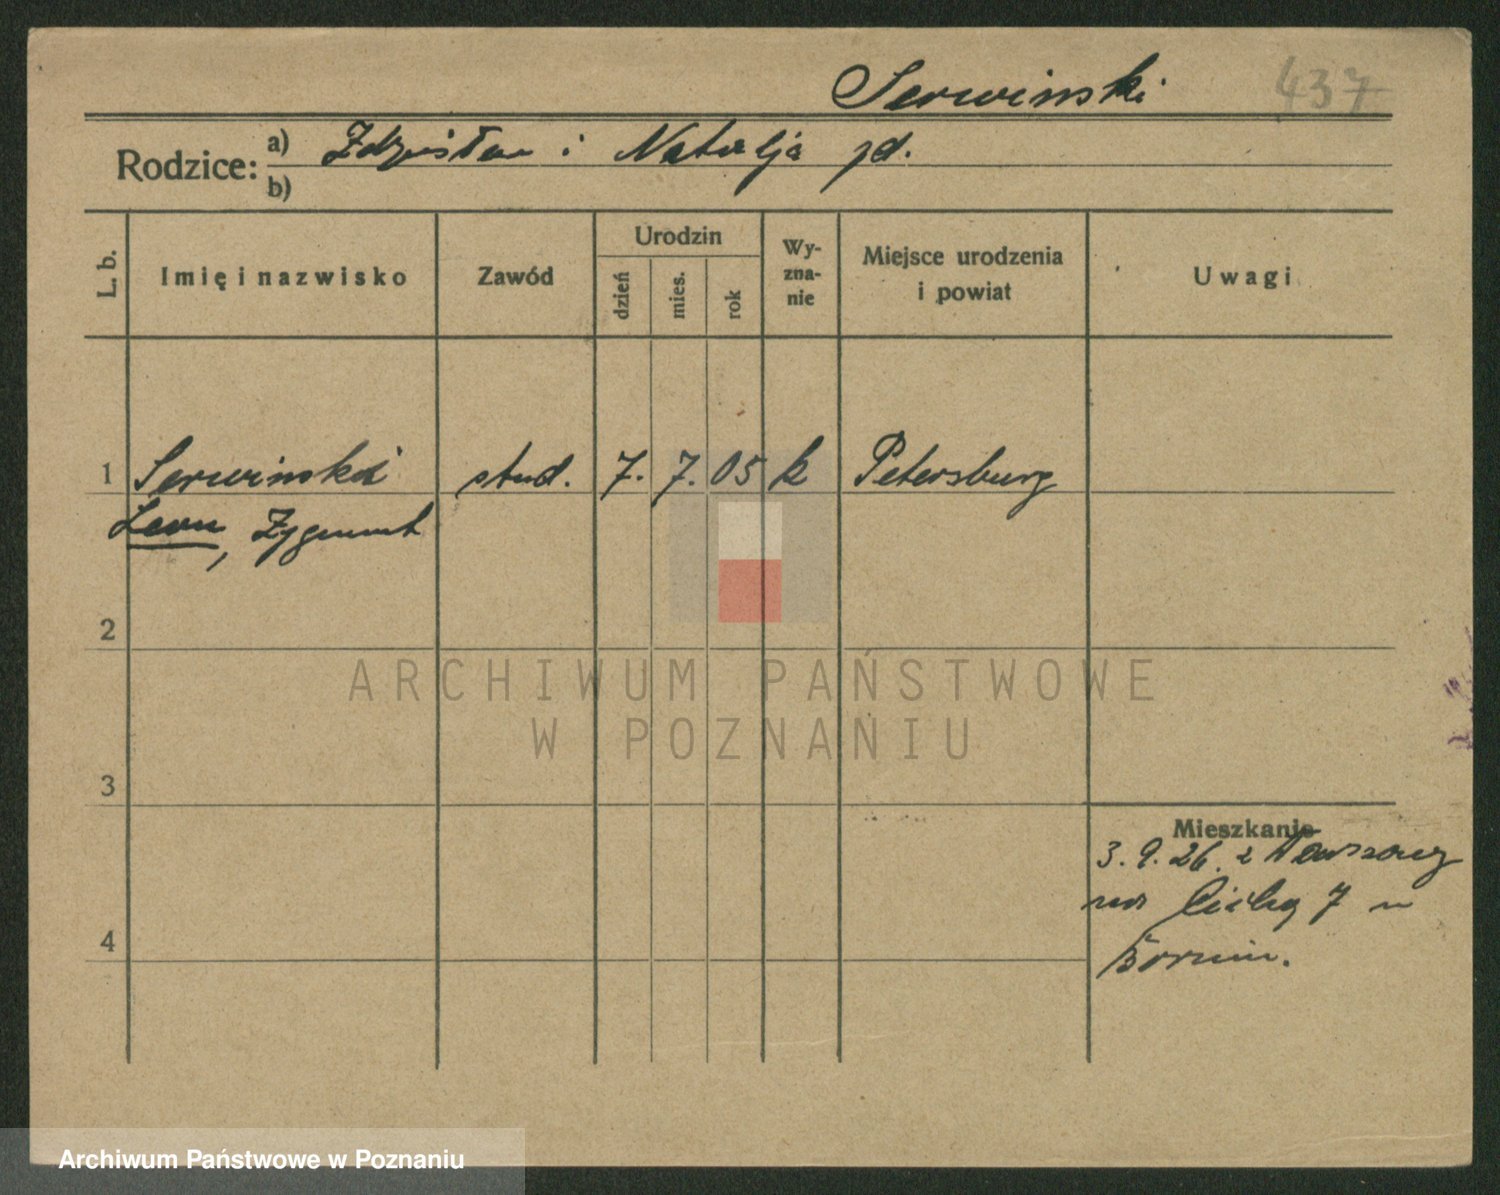 Serwinski 437
Rodzice: a) Zdzisław i Natalja jd.
b)
L. b. Imię i nazwisko Zawód Urodzin dzień mies. rok Wyzna-nie Miejsce urodzenia i powiat Uwagi
1 Serwinski stud. 7. 7. 05 k Petersburg
Leon, Zygmunt
2
ARCHIWUM PAŃSTWOWE
W POZNANIU
3
Mieszkanie
3. 9. 26. z Warszawy
na Cichą 7 u
4
Archiwum Państwowe w Poznaniu